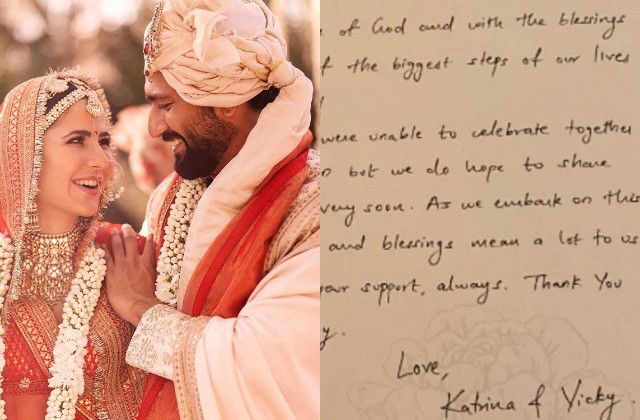 of God and with the blessings
the biggest steps of our lives
were unable to celebrate together
but we do hope to share
very soon. As we embark on this
and blessings mean a lot to us
your support, always. Thank You
Love,
Katrina & Vicky